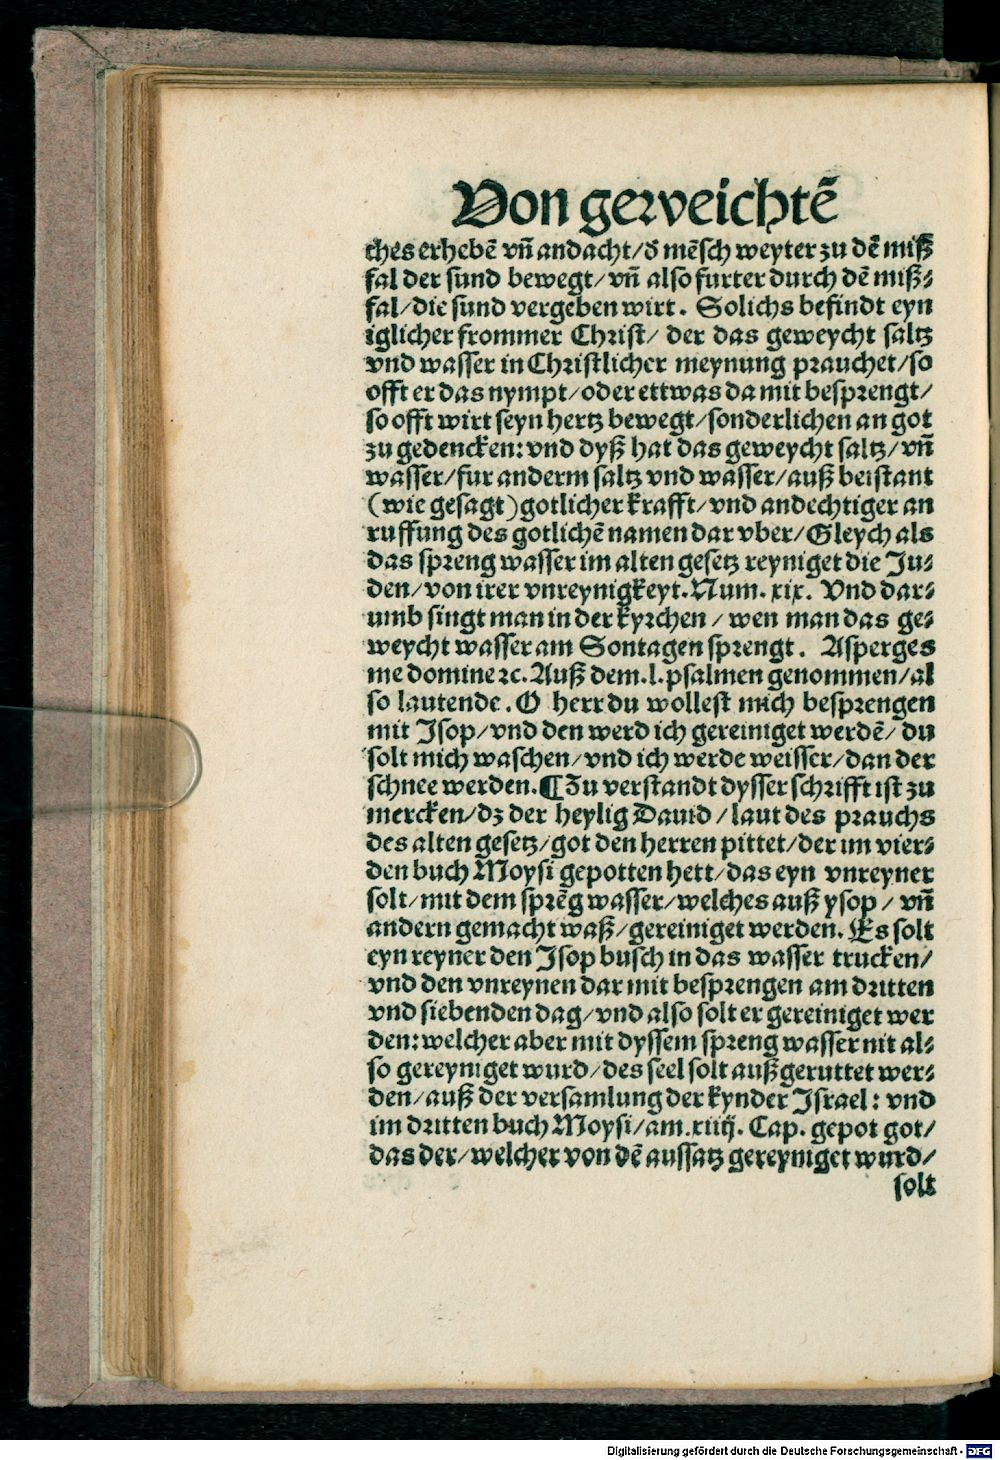 Von geweichtẽ
ches erhebẽ vñ andacht/ď mẽsch weyter zu dẽ miß
fal der sund bewegt/vñ also furter durch dẽ miß⸗
fal/die sund vergeben wirt. Solichs befindt eyn
iglicher frommer Christ/ der das geweycht saltz
vnd wasser in Christlicher meynung prauchet/so
offt er das nympt/oder ettwas da mit besprengt/
so offt wirt seyn hertz bewegt/sonderlichen an got
zu gedencken: vnd dyß hat das geweycht saltz/vñ
wasser/fur anderm saltz vnd wasser/auß beistant
(wie gesagt)gotlicher krafft/vnd andechtiger an
ruffung des gotlichẽ namen dar vber/Gleych als
das spreng wasser im alten gesetz reyniget die Ju⸗
den/von irer vnreynigkeyt.Num. xix. Vnd dar⸗
umb singt man in der kyrchen / wen man das ge⸗
weycht wasser am Sontagen sprengt. Asperges
me domine ⁊c. Auß dem.l.psalmen genommen/al
so lautende. O herr du wollest mich besprengen
mit Isop/vnd den werd ich gereiniget werdẽ/du
solt mich waschen/vnd ich werde weisser/dan der
schnee werden.¶Zu verstandt dysser schrifft ist zu
mercken/dz der heylig Dauid /laut des prauchs
des alten gesetz/got den herren pittet/der im vier⸗
den buch Moysi gepotten hett/das eyn vnreyner
solt/mit dem sprẽg wasser/welches auß ysop / vñ
andern gemacht waß/gereiniget werden. Es solt
eyn reyner den Isop busch in das wasser trucken/
vnd den vnreynen dar mit besprengen am dritten
vnd siebenden dag/vnd also solt er gereiniget wer
den: welcher aber mit dyssem spreng wasser nit al⸗
so gereyniget wurd/des seel solt außgeruttet wer⸗
den/auß der versamlung der kynder Israel: vnd
im dritten buch Moysi/am.xiiij. Cap. gepot got/
das der/welcher von dẽ aussatz gereyniget wurd/
solt
Digitalisierung gefördert durch die Deutsche Forschungsgemeinschaft - DFG